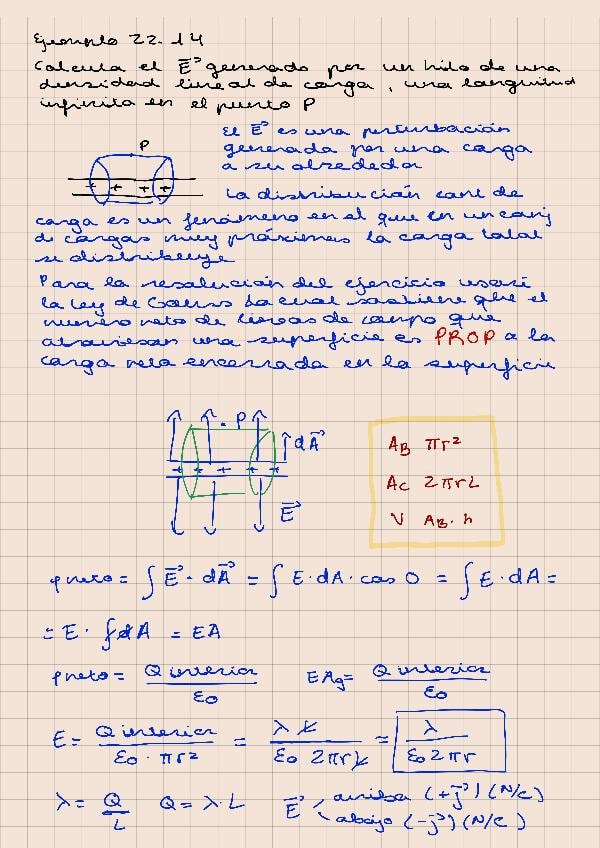 Ejemplo 22.14
Calcula el E⃗ generado por un hilo de una
densidad lineal de carga, una longuitud
infinita en el punto P
P
El E⃗ es una perturbación
generada por una carga
a su alrededor
+ + + +
La distribución cont de
carga es un fenómeno en el que en un conj
de cargas muy próximas la carga total
se distribuye
Para la resolución del ejercicio usaré
la ley de Gauss la cual sostiene que el
numero neto de líneas de campo que
atraviesan una superficie es PROP a la
carga neta encerrada en la superficie
. P
dA⃗
+ + + + +
E⃗
AB πr²
AC 2πrL
V AB · h
φneto = ∫ E⃗ · dA⃗ = ∫ E · dA · cos 0 = ∫ E · dA =
= E · ∫dA = EA
φneto = Q interior / ε0    EAg = Q interior / ε0
E = Q interior / ε0 · πr² = λ L / ε0 2πrL = λ / ε0 2πr
λ = Q / L    Q = λ · L    E⃗ arriba (+j⃗) (N/C)
abajo (-j⃗) (N/C)